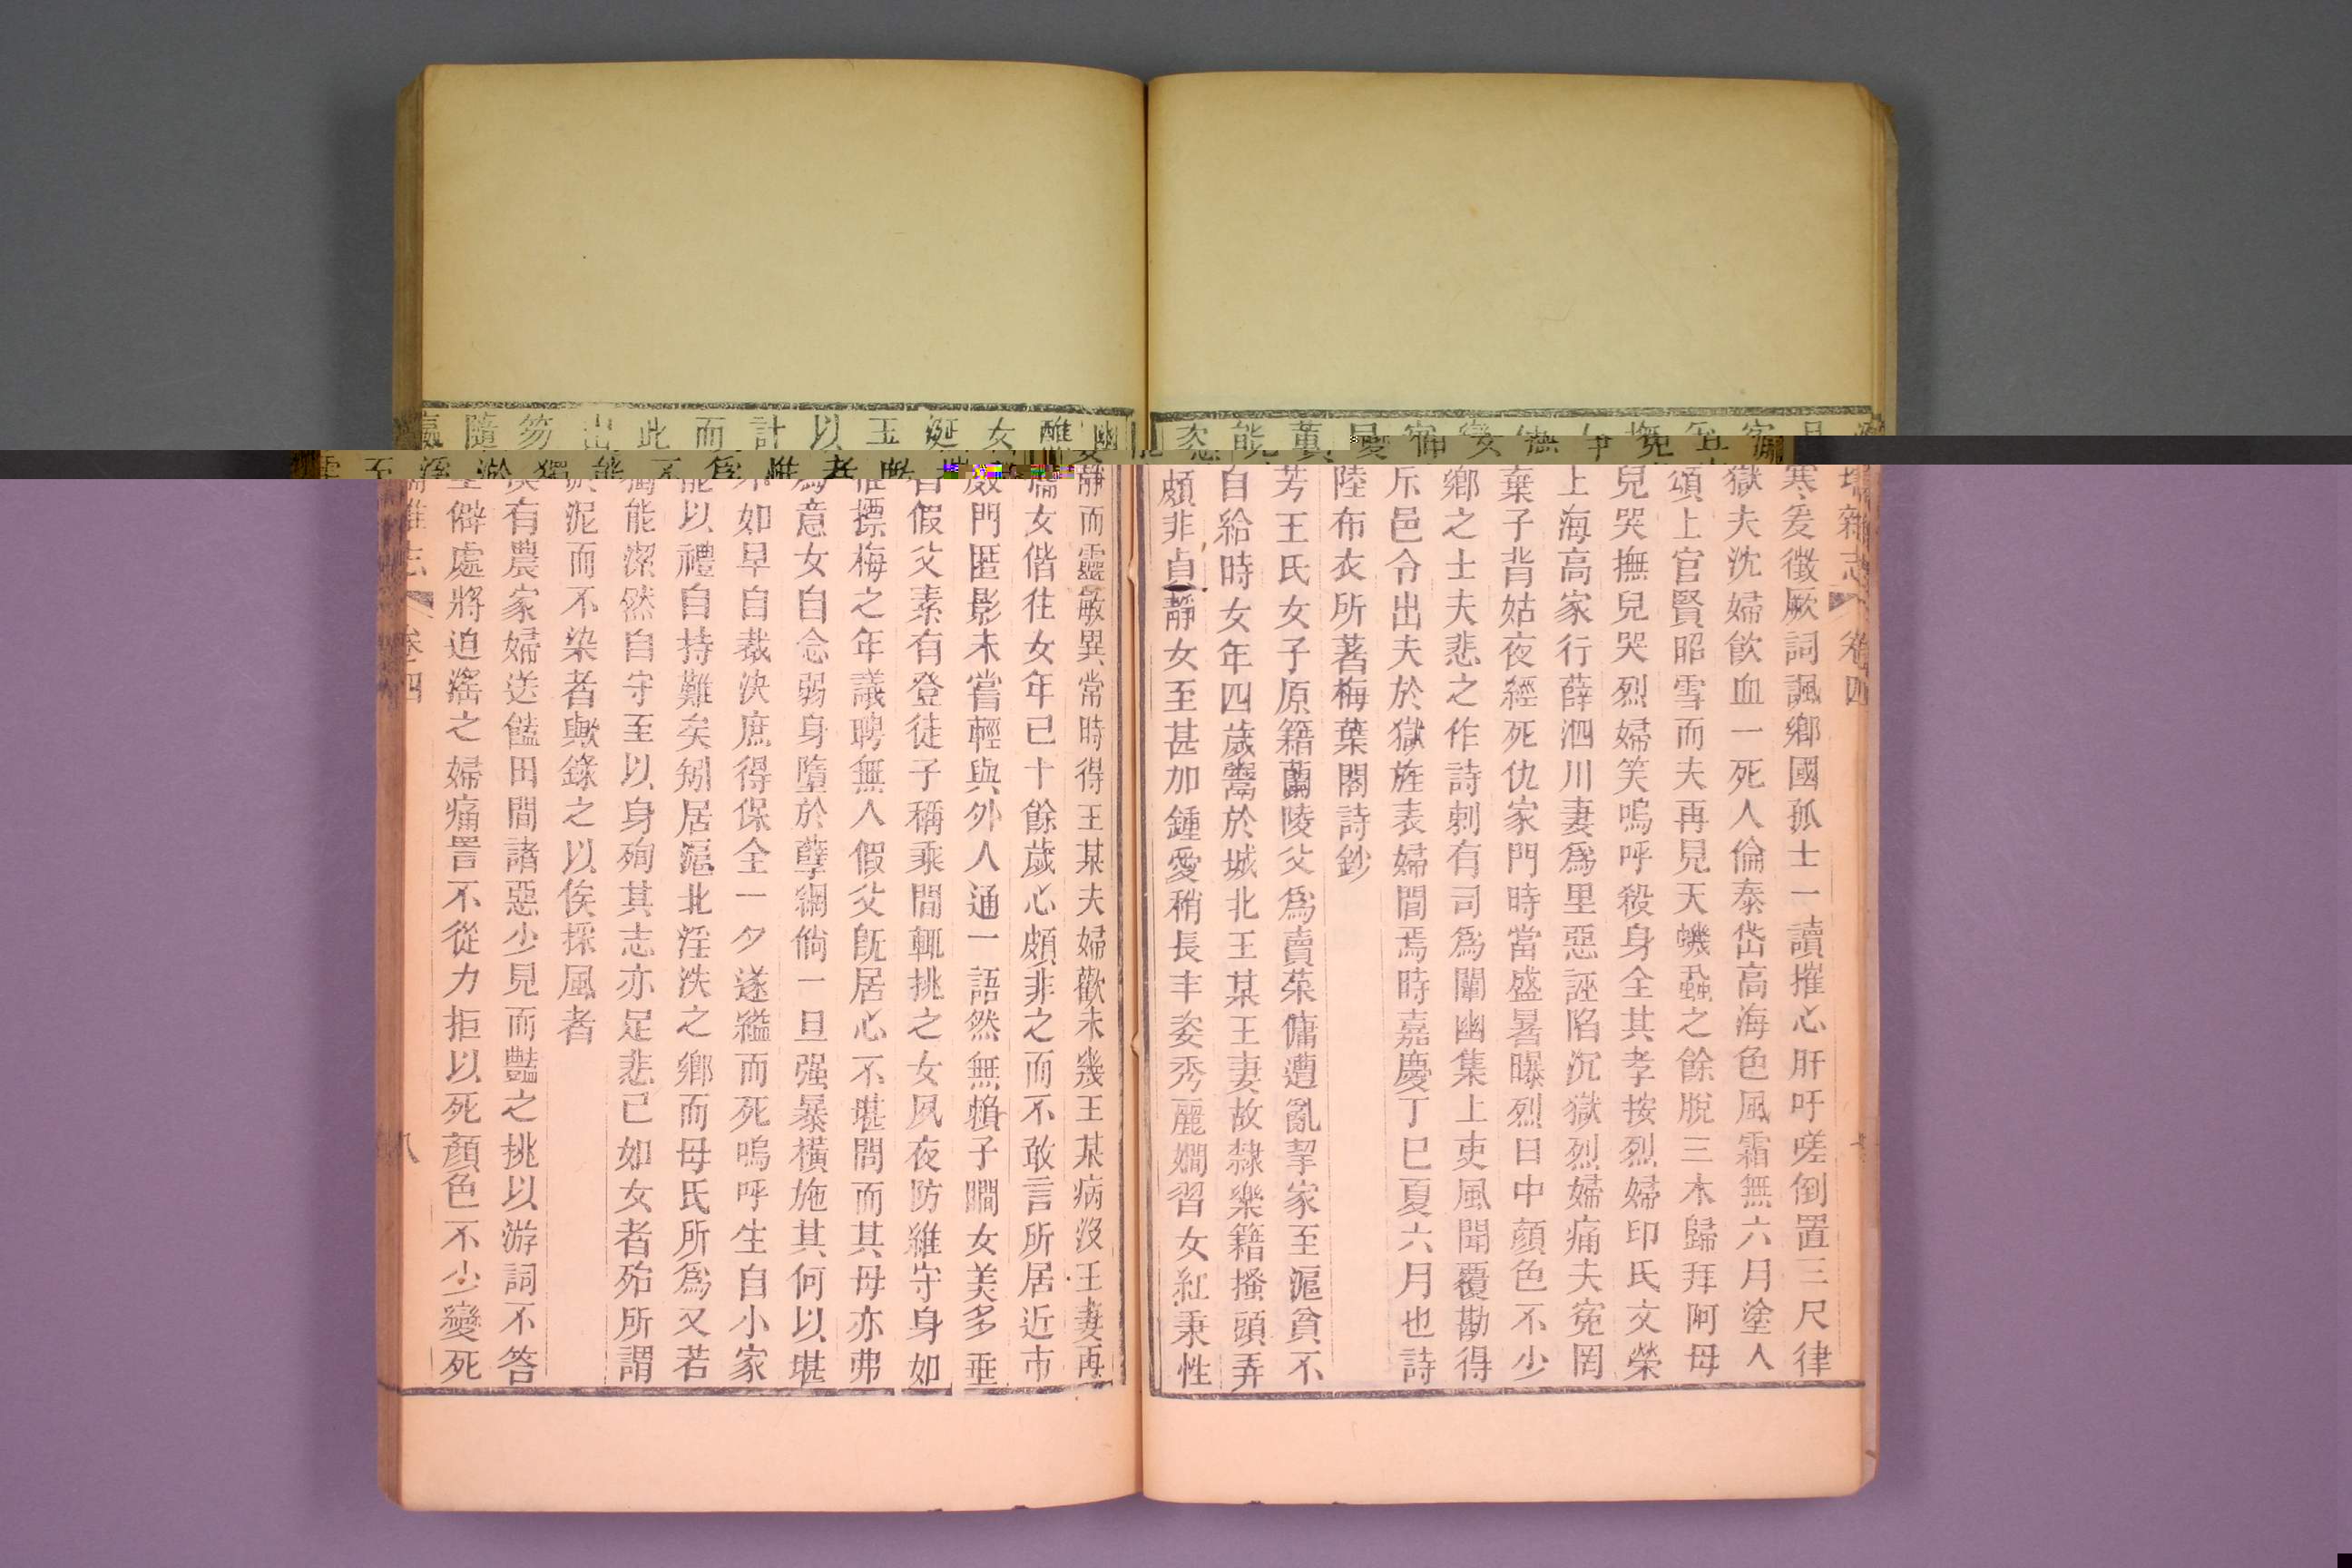 瑣雜志 卷四
寒爰徵厥詞諷鄉國孤士一讀摧心肝吁嗟倒置三尺律
獄夫沈婦飲血一死人倫泰岱高海色風霜無六月塗人
頌上官賢昭雪而夫再見天蟣蝨之餘脫三木歸拜阿母
兒哭撫兒哭烈婦笑嗚呼殺身全其孝按烈婦印氏文榮
上海高家行薛泗川妻爲里惡誣陷沉獄烈婦痛夫冤罔
棄子背姑夜經死仇家門時當盛暑曝烈日中顏色不少
鄉之士夫悲之作詩刺有司爲闡幽集上吏風聞覆勘得
斥邑令出夫於獄旌表婦閭焉時嘉慶丁巳夏六月也詩
陸布衣所著梅葉閣詩鈔
芳王氏女子原籍蘭陵父爲賣菜傭遭亂挈家至滬貧不
能自給時女年四歲鬻於城北王某王妻故隸樂籍搔頭弄
恣頗非貞靜女至甚加鍾愛稍長丰姿秀麗嫺習女紅秉性
幽靜而靈敏異常時得王某夫婦歡未幾王某病沒王妻再
醮女偕往女年已十餘歲心頗非之而不敢言所居近市
女門匿影未嘗輕與外人通一語然無賴子瞷女美多垂
涎假父素有登徒子稱乘間輒挑之女夙夜防維守身如
玉摽梅之年議聘無人假父旣居心不堪問而其母亦弗
以爲意女自念弱身墮於孽綱倘一旦强暴橫施其何以堪
計不如早自裁決庶得保全一夕遂縊而死嗚呼生自小家
而能以禮自持難矣矧居滬北淫泆之鄉而母氏所爲又若
此能潔然自守至以身殉其志亦足悲已如女者殆所謂
出泥而不染者歟錄之以俟採風者
有農家婦送饁田間諸惡少見而豔之挑以游詞不答
隨僻處將迫瀦之婦痛詈不從力拒以死顏色不少變死
雜志 卷四 八